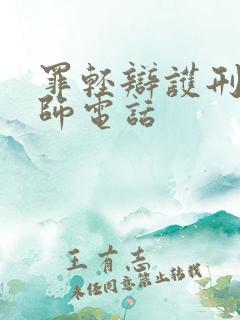 罪輕辯護刑
師電話
王有志
未任同意禁止转载